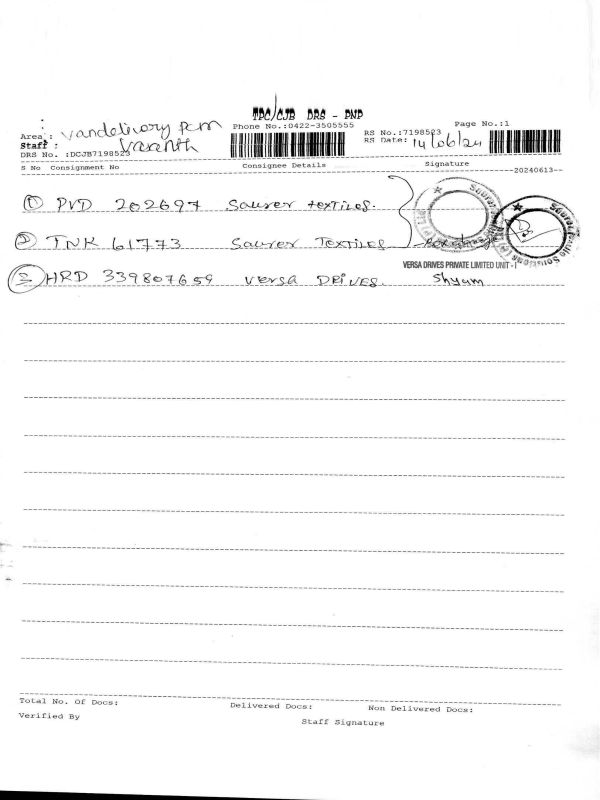 TPC/CJB DRS - PNP
Phone No.:0422-3505555
Page No.:1
Area : Vandelivery pcm
Staff : Vasanth
RS No.:7198523
RS Date: 14/06/24
DRS No. :DCJB7198523
S No Consignment No Consignee Details Signature
--20240613--
① PVD 202697 Saurer Textiles.
② TNK 61773 Saurer Textiles
VERSA DRIVES PRIVATE LIMITED UNIT - I
③ HRD 339807659 Versa DRIVES. Shyam
Total No. Of Docs: Delivered Docs: Non Delivered Docs:
Verified By Staff Signature